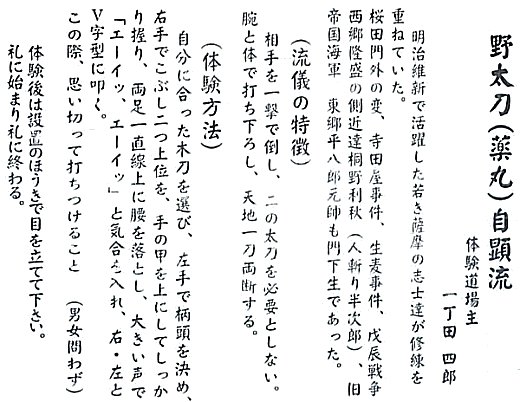 野太刀（薬丸）自顕流
体験道場主
一丁田 四郎
明治維新で活躍した若き薩摩の志士達が修練を
重ねていた。
桜田門外の変、寺田屋事件、生麦事件、戊辰戦争
西郷隆盛の側近達桐野利秋（人斬り半次郎）、旧
帝国海軍 東郷平八郎元帥も門下生であった。
（流儀の特徴）
相手を一撃で倒し、二の太刀を必要としない。
腕と体で打ち下ろし、天地一刀両断する。
（体験方法）
自分に合った木刀を選び、左手で柄頭を決め、
右手でこぶし二つ上位を、手の甲を上にしてしっか
り握り、両足一直線上に腰を落とし、大きい声で
「エーイッ、エーイッ」と気合を入れ、右・左と
V字型に叩く。
この際、思い切って打ちつけること （男女問わず）
体験後は設置のほうきで目を立てて下さい。
礼に始まり礼に終わる。